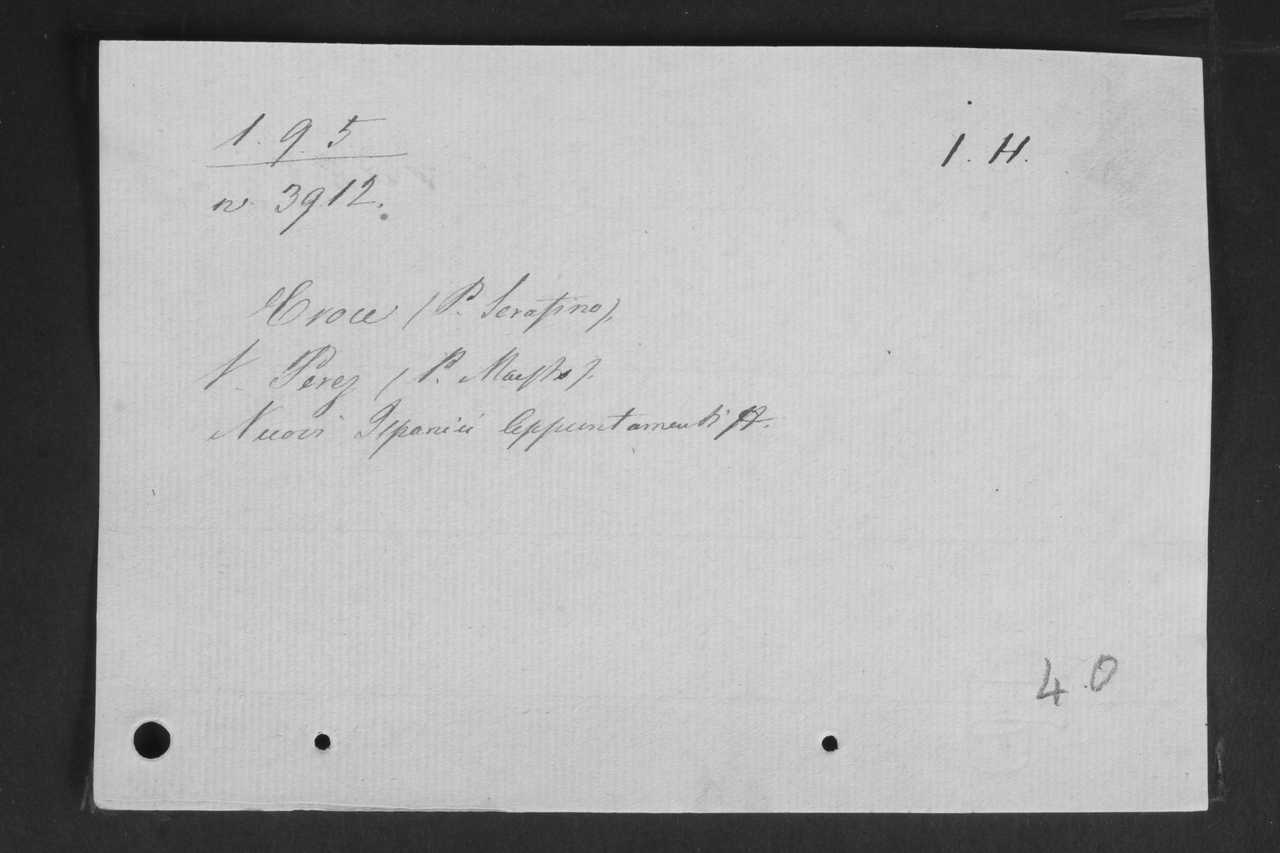 1. 9. 5
I. H.
n. 3912.
Croce (P. Serafino).
V. Perez (P. Maestro).
Nuovi Ispanici Appuntamenti
40